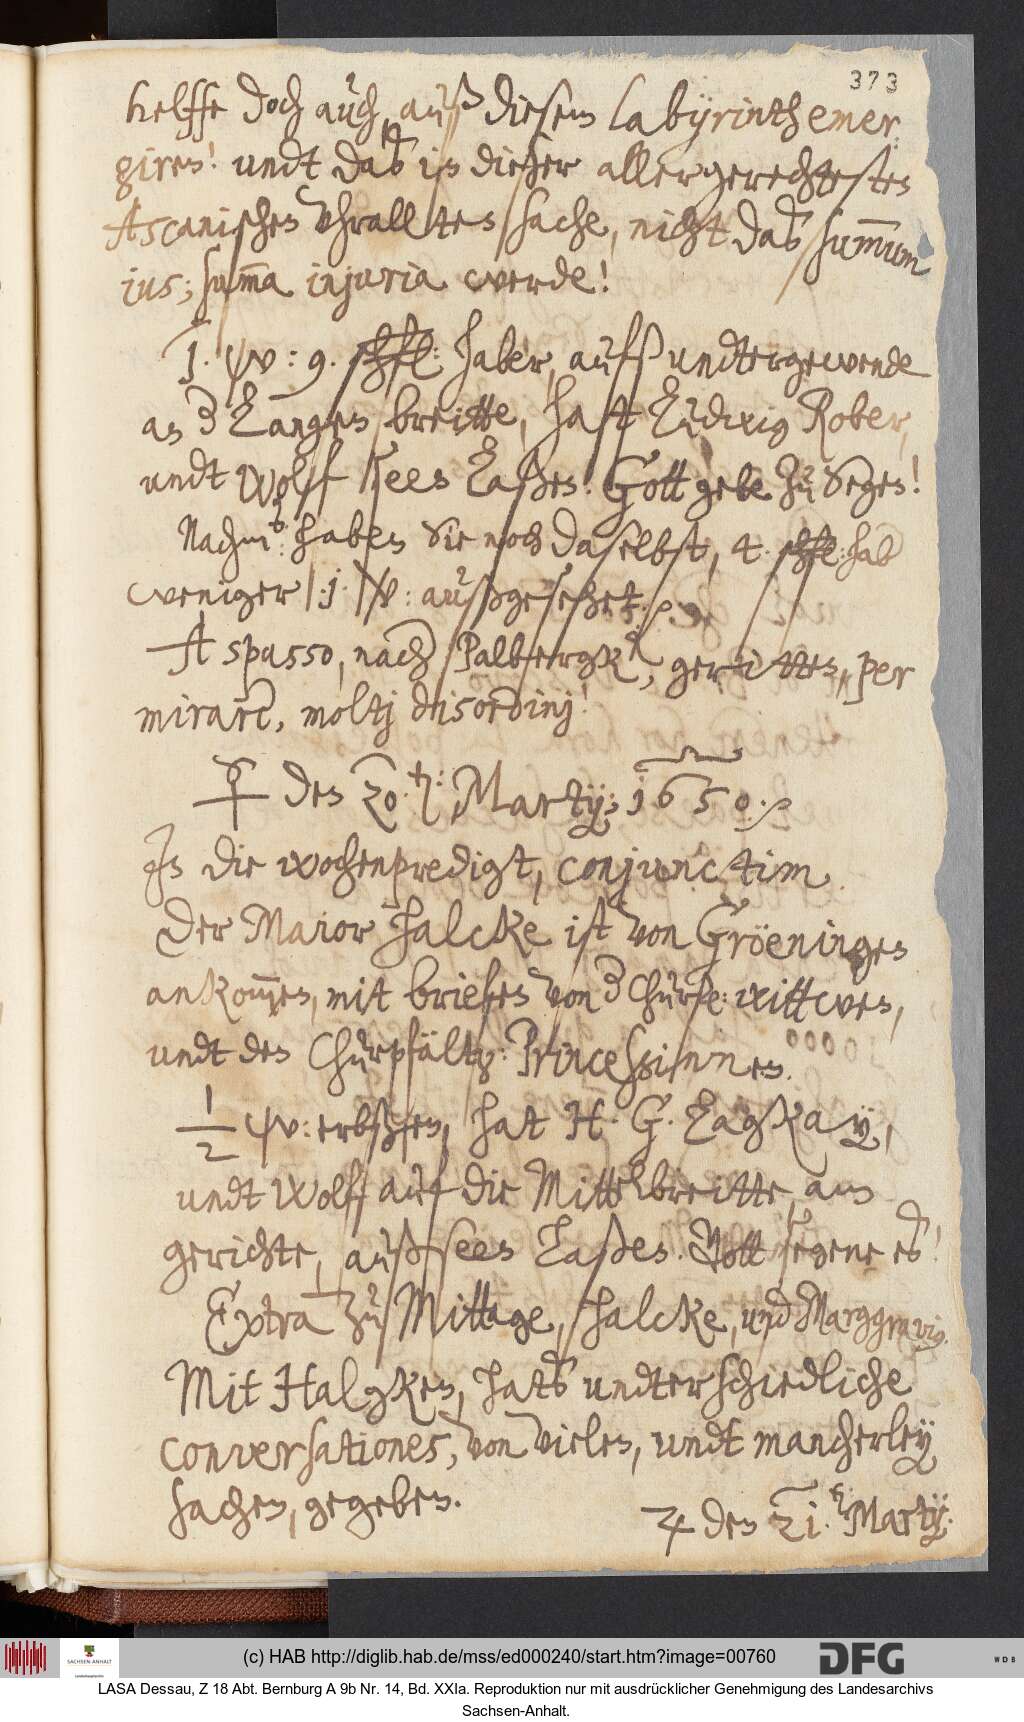 373
helffe doch auch, auß diesem labyrinth emer,
giren! undt daß in dieser allergerechtesten
Ascanischen Uhrallten sache, nicht daß summum
ius; summa injuria werde!
1. W: 9. schfl: haber, aufs undtergewende
an d langen breitte, hatt Ludwig Rober,
undt Wolff seen laßen. Gott gebe zu Segen!
Nachmb: haben sie noch daselbst, 4. schfl: hab
weniger /:1. W: außgesehet. p
A spasso, nach Palberg, geritten, per
mirare, moltj disordinj!
☿ den 20.th: Martij; 1650. p
In die wochenpredigt, conjunctim
Der Maior Halcke ist von Gröeningen
ankommen, mit briefen von d Churf: wittwen,
undt den Churpfältz: Princessinnen.
1/2 W: erbßen, hat H. G. Lagkay,
undt Wolff auf die Mittelbreitte, am
gerichte, auß seen laßen. Gott segene es!
Extra zu Mittage, Halcke, und Marggravin.
Mit Halcken, hats undterschiedliche
conversationes, von vielen, undt mancherley
sachen, gegeben.
♃ den 21.th: Martij.
(c) HAB http://diglib.hab.de/mss/ed000240/start.htm?image=00760
SACHSEN-ANHALT
DFG
WDB
LASA Dessau, Z 18 Abt. Bernburg A 9b Nr. 14, Bd. XXIa. Reproduktion nur mit ausdrücklicher Genehmigung des Landesarchivs
Sachsen-Anhalt.